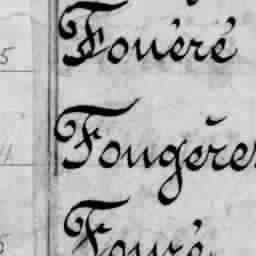 5 Fouéré
Fougères
Fouré